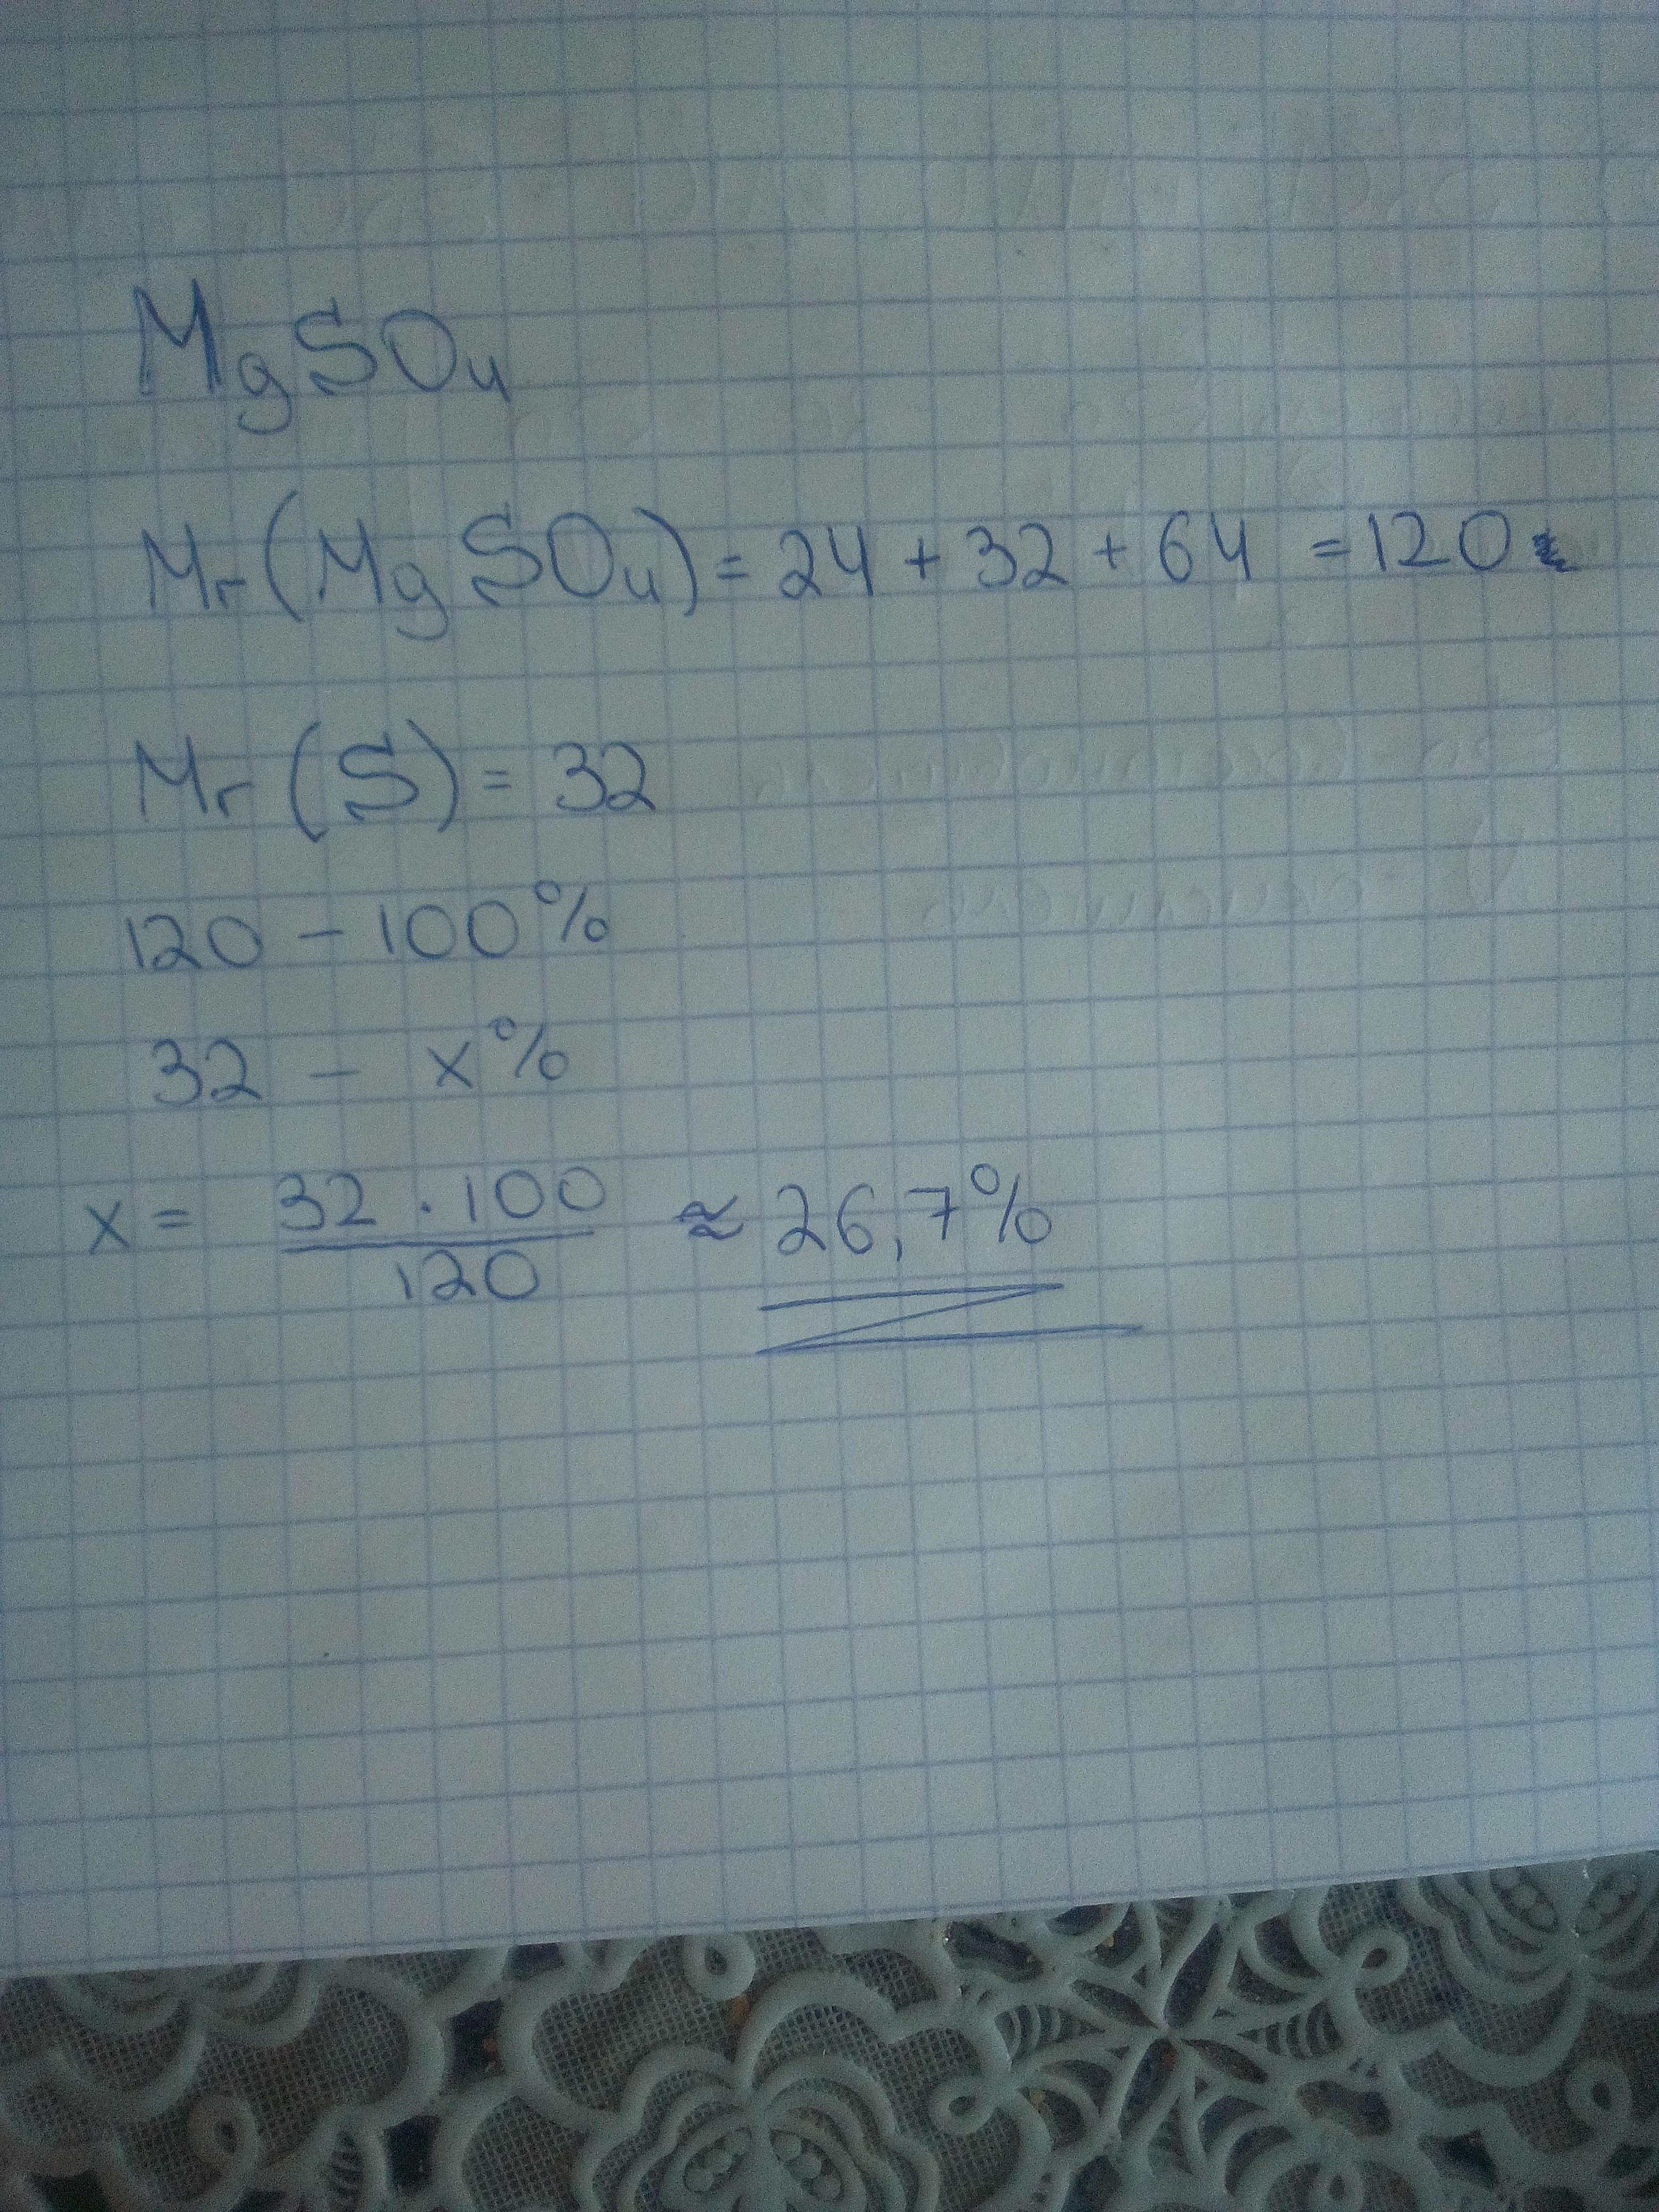 MgSO₄
Mr(MgSO₄) = 24 + 32 + 64 = 120
Mr(S) = 32
120 – 100%
32 – x%
x = 32 · 100 / 120 ≈ 26,7%